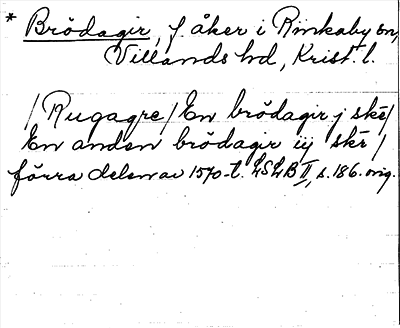 * Brödagir, f. åker i Rinkaby sn,
Villands hd, Krist. l.
/Rugagre/ En brödagir j skē/
En anden brödagir iij skē/
förra delen av 1570-t. LSLB II, s. 186. orig.